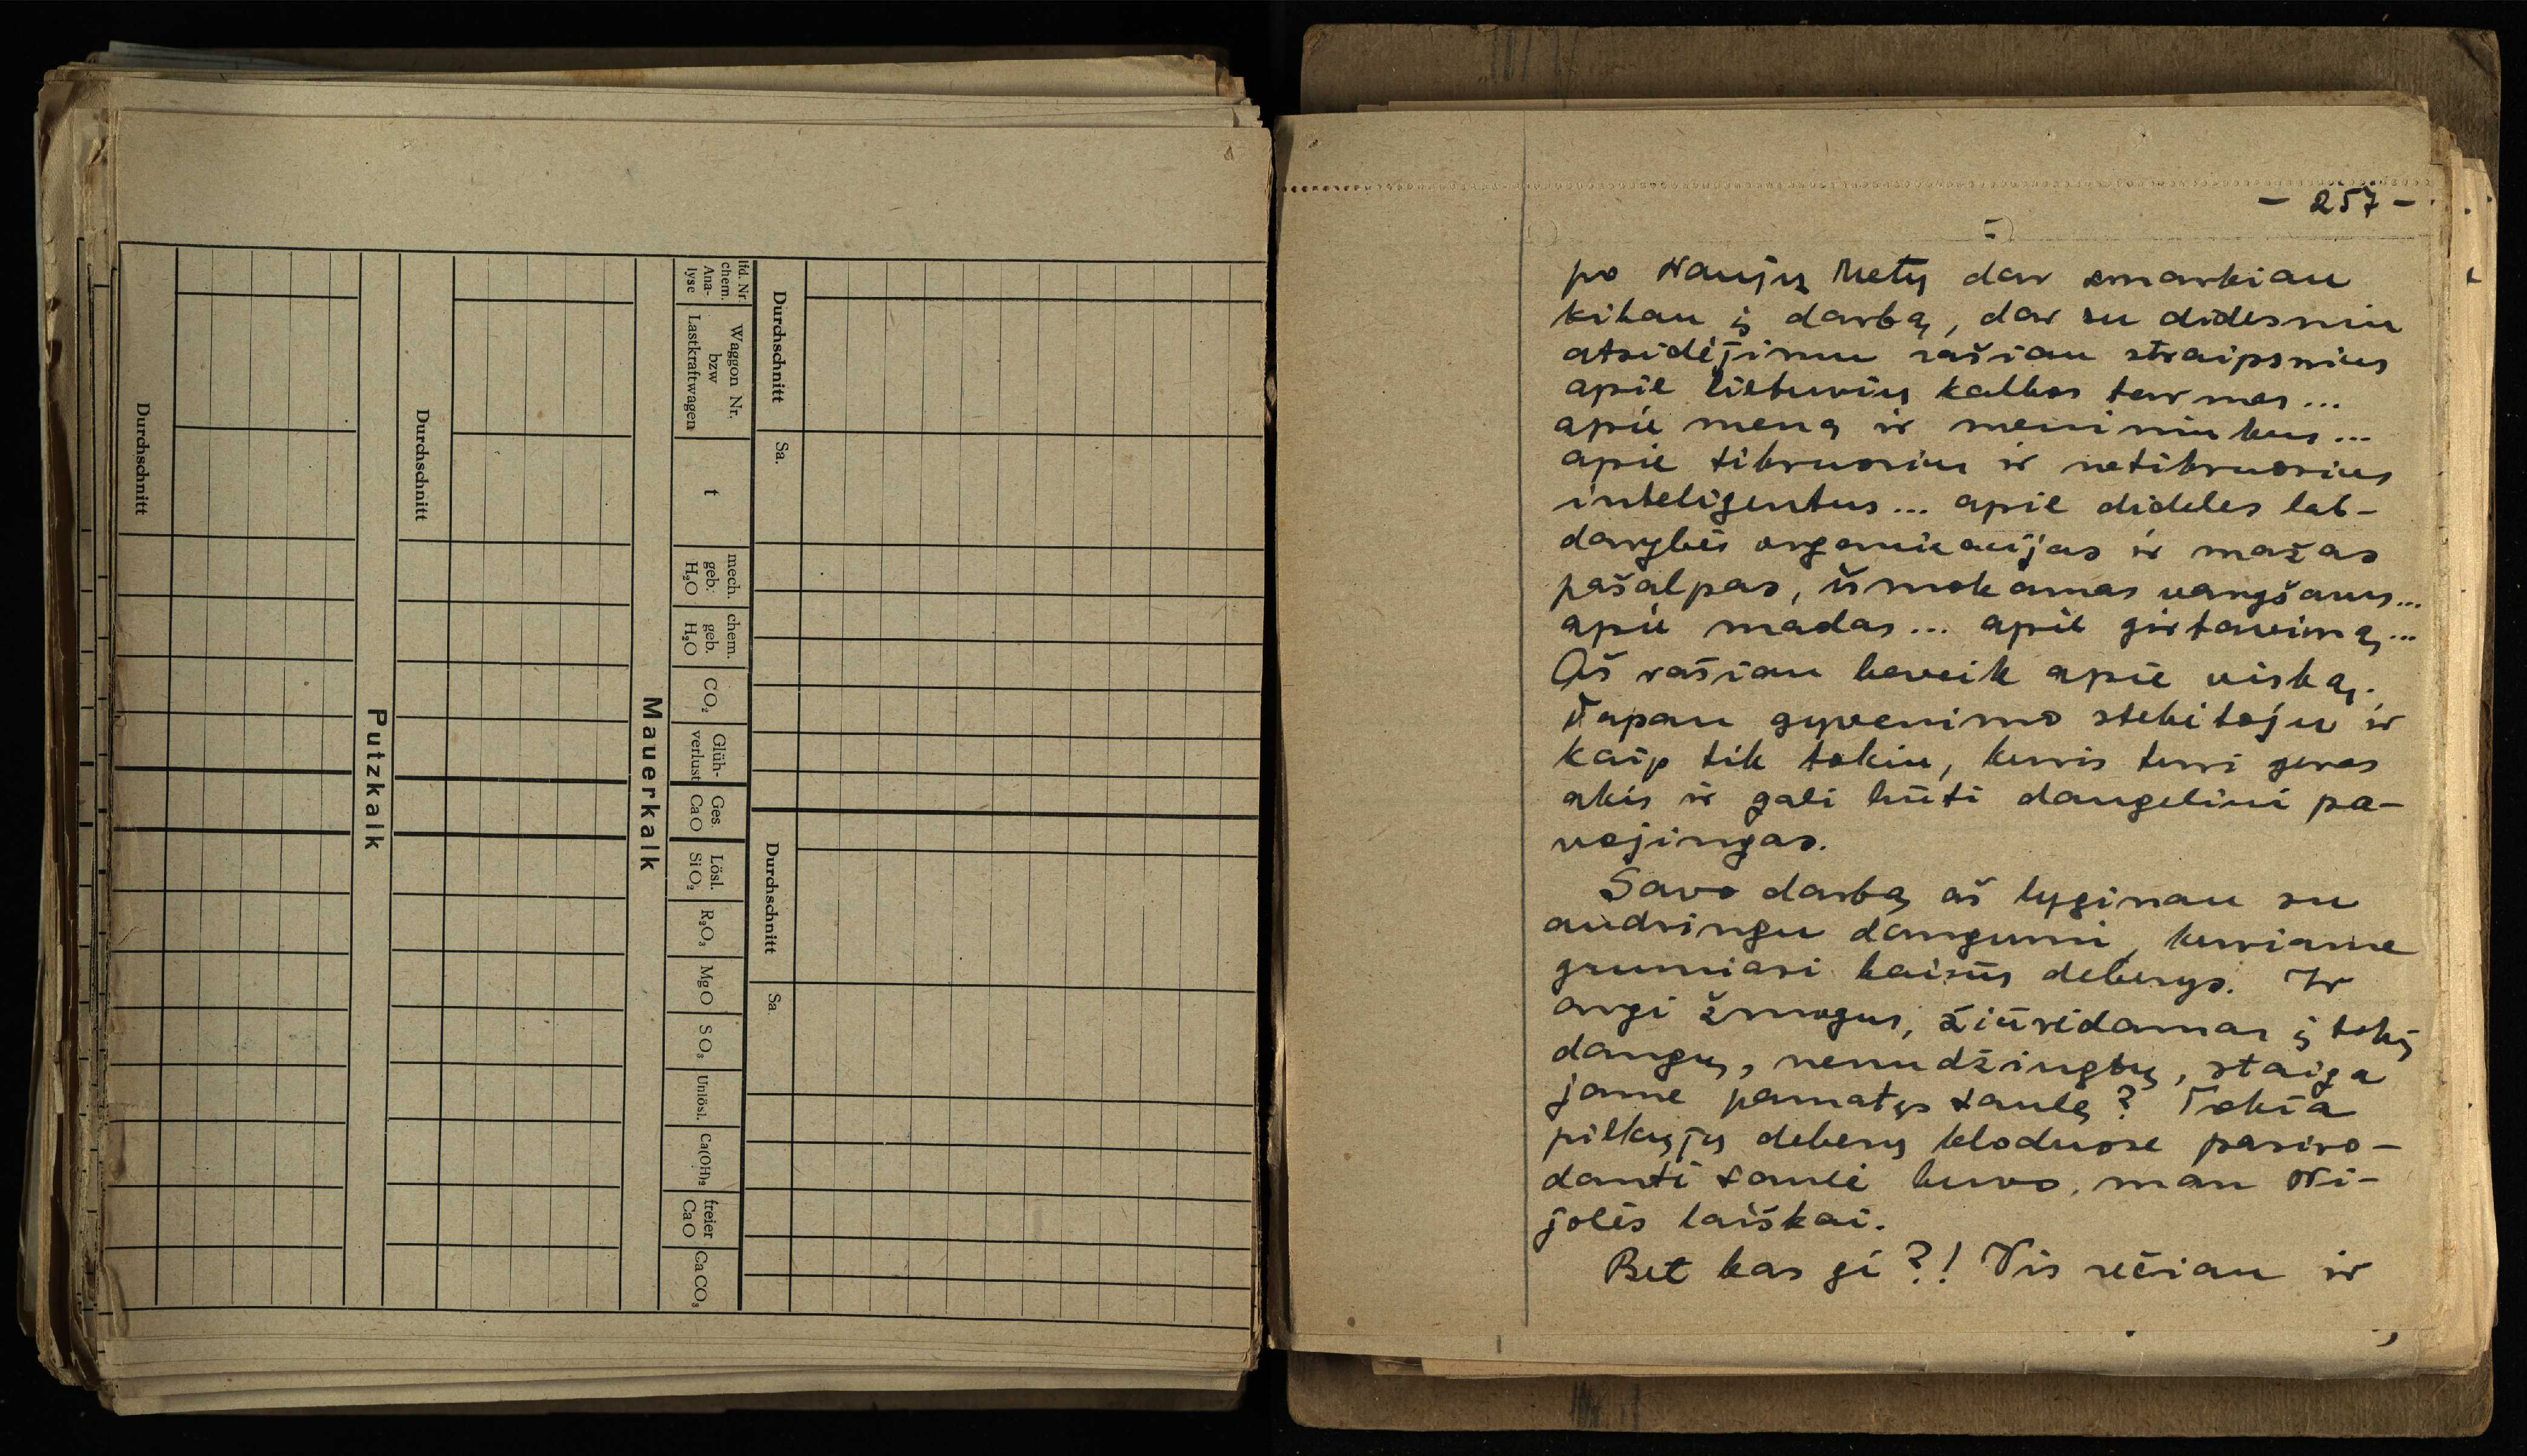 Durchschnitt
Sa.
Durchschnitt
Sa
lfd. Nr
chem.
Ana-
lyse
Waggon Nr.
bzw
Lastkraftwagen
t
mech.
geb:
H₂O
chem.
geb.
H₂O
CO₂
Glüh-
verlust
Ges.
CaO
Lösl.
SiO₂
R₂O₃
MgO
SO₃
Unlösl.
Ca(OH)₂
freier
CaO
CaCO₃
Mauerkalk
Durchschnitt
Putzkalk
Durchschnitt
- 257 -
po Naujų Metų dar smarkiau
kibau į darbą, dar su didesniu
atsidėjimu rašiau straipsnius
apie lietuvių kalbos tarmes...
apie meną ir menininkus...
apie tikruosius ir netikruosius
inteligentus... apie dideles lab-
darybės organizacijas ir mažas
pašalpas, išmokamas vargšams...
apie madas... apie girtavimą...
Aš rašiau beveik apie viską.
Tapau gyvenimo stebėtoju ir
kaip tik tokiu, kuris turi geras
akis ir gali būti daugeliui pa-
vojingas.
Savo darbą aš lyginau su
audringu dangumi, kuriame
grumiasi baisūs debesys. Ir
argi žmogus, žiūrėdamas į tokį
dangų, nenudžiugtų, staiga
jame pamatęs saulę? Tokia
pilkųjų debesų kloduose pasiro-
danti saulė buvo man Ni-
jolės laiškai.
Bet kas gi?! Vis rečiau ir